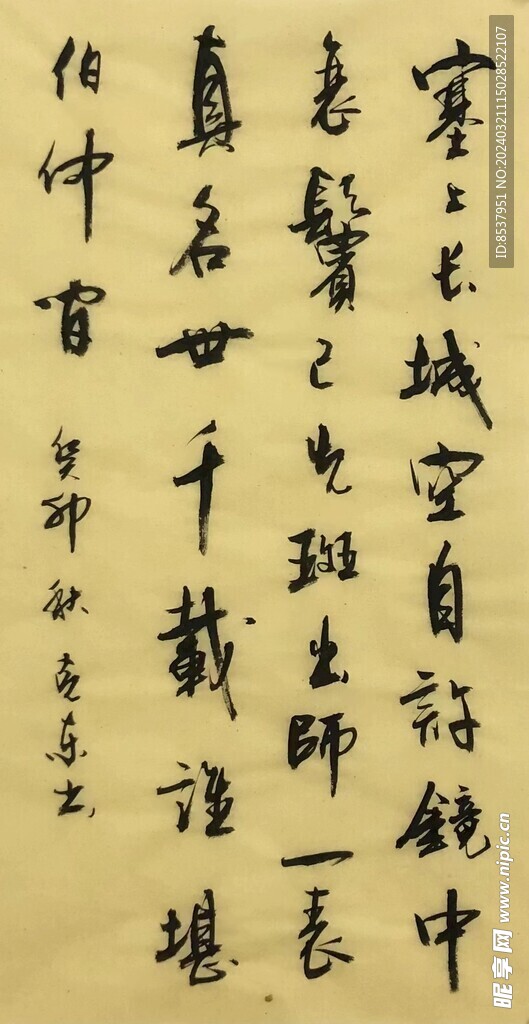 塞上长城空自許鏡中
衰鬢已先斑出師一表
真名世千載誰堪
伯仲間
癸卯秋克東书
ID:8537951 NO:20240321115028522107
昵享网 www.nipic.cn